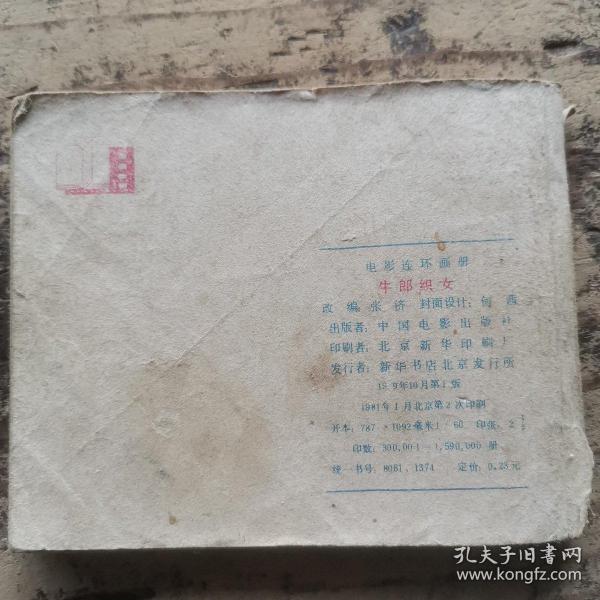 电影连环画册
牛郎织女
改编:张济 封面设计:何茜
出版者:中国电影出版社
印刷者:北京新华印刷厂
发行者:新华书店北京发行所
19 9年10月第1版
1981年1月北京第2次印刷
开本:787×1092毫米1/60 印张:2
印数:300,001—1,590,000册
统一书号:8061.1374 定价:0.23元
孔夫子旧书网
www.kongfz.com